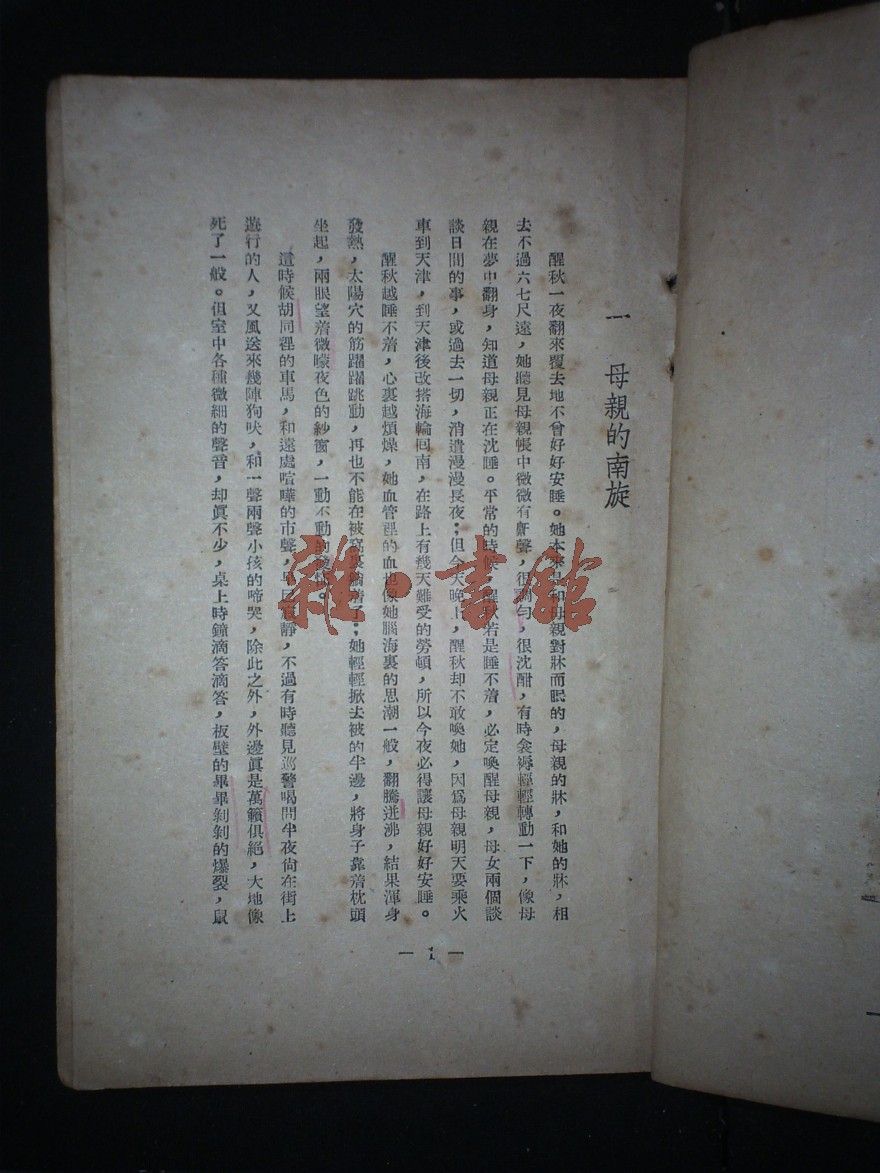 一 母親的南旋
醒秋一夜翻來覆去地不曾好好安睡。她本來是和母親對牀而眠的，母親的牀，和她的牀，相
去不過六七尺遠，她聽見母親帳中微微有鼾聲，很調勻，很沈酣，有時衾褥輕輕轉動一下，像母
親在夢中翻身，知道母親正在沈睡。平常的時候，醒秋若是睡不着，必定喚醒母親，母女兩個談
談日間的事，或過去一切，消遣漫漫長夜；但今天晚上，醒秋却不敢喚她，因爲母親明天要乘火
車到天津，到天津後改搭海輪回南，在路上有幾天難受的勞頓，所以今夜必得讓母親好好安睡。
醒秋越睡不着，心裏越煩燥，她血管裡的血也像她腦海裏的思潮一般，翻騰迸沸，結果渾身
發熱，太陽穴的筋躍躍跳動，再也不能在被窩裏躺着了；她輕輕掀去被的半邊，將身子靠着枕頭
坐起，兩眼望着微曚夜色的紗窗，一動不動的
這時候胡同裡的車馬，和遠處喧嘩的市聲，早已寂靜，不過有時聽見巡警喝問半夜尙在街上
遊行的人，又風送來幾陣狗吠，和一聲兩聲小孩的啼哭，除此之外，外邊眞是萬籟俱絕，大地像
死了一般。但室中各種微細的聲音，却眞不少，桌上時鐘滴答滴答，板壁的畢畢剝剝的爆裂，鼠
— 1 —
雜·書館